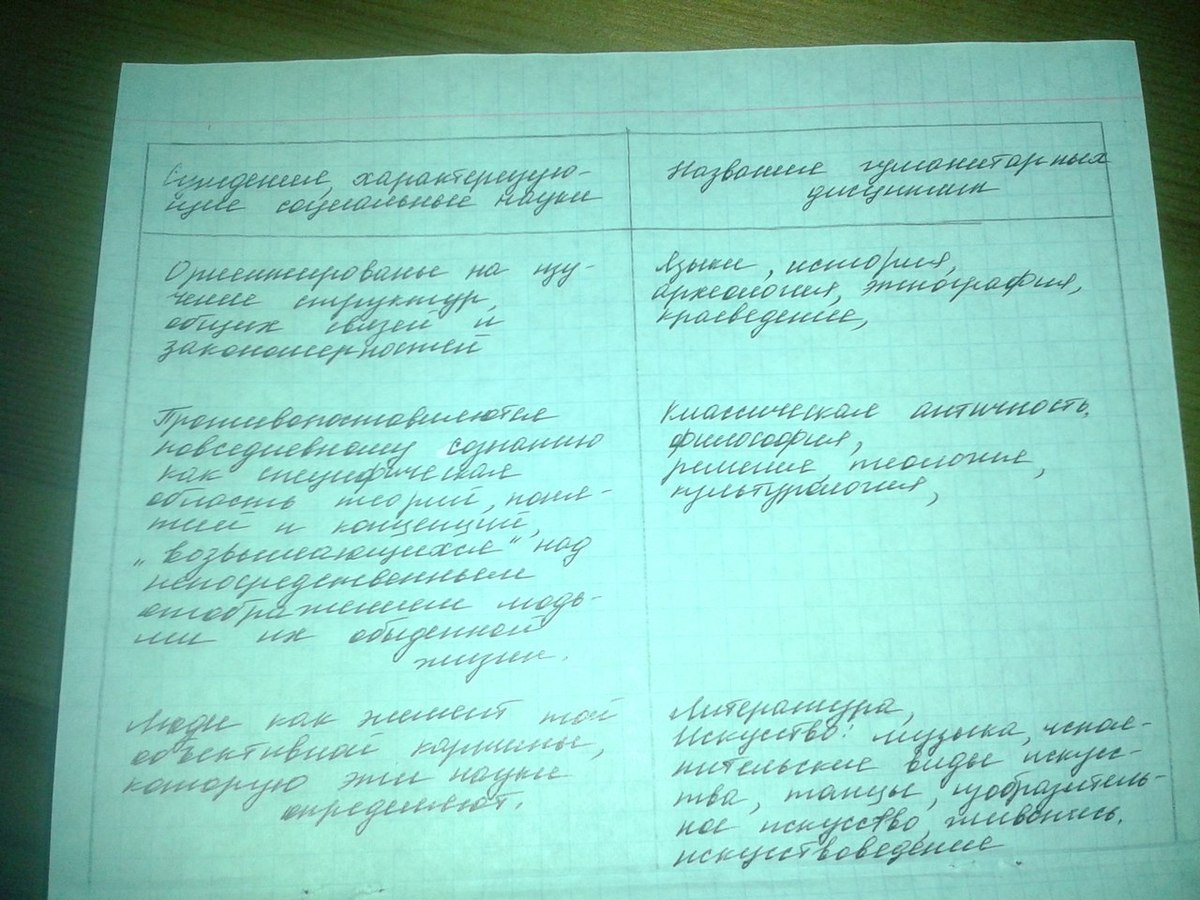 Суждения, характеризую-
щие социальные науки
Название гуманитарных
дисциплин
Ориентированы на изу-
чение структур,
общих связей и
закономерностей
Языки, история,
археология, этнография,
краеведение,
Противопоставляются
повседневному сознанию
как специфическая
область теорий, поня-
тий и концепций,
„возвышающихся" над
непосредственным
отображением людь-
ми их обыденной
жизни.
Классическая античность,
философия,
религия, теология,
культурология,
Люди как элемент той
объективной картины,
которую эти науки
определяют.
Литература,
Искусство: музыка, испол-
нительские виды искусс-
тва, танцы, изобразитель-
ное искусство, живопись,
искусствоведение